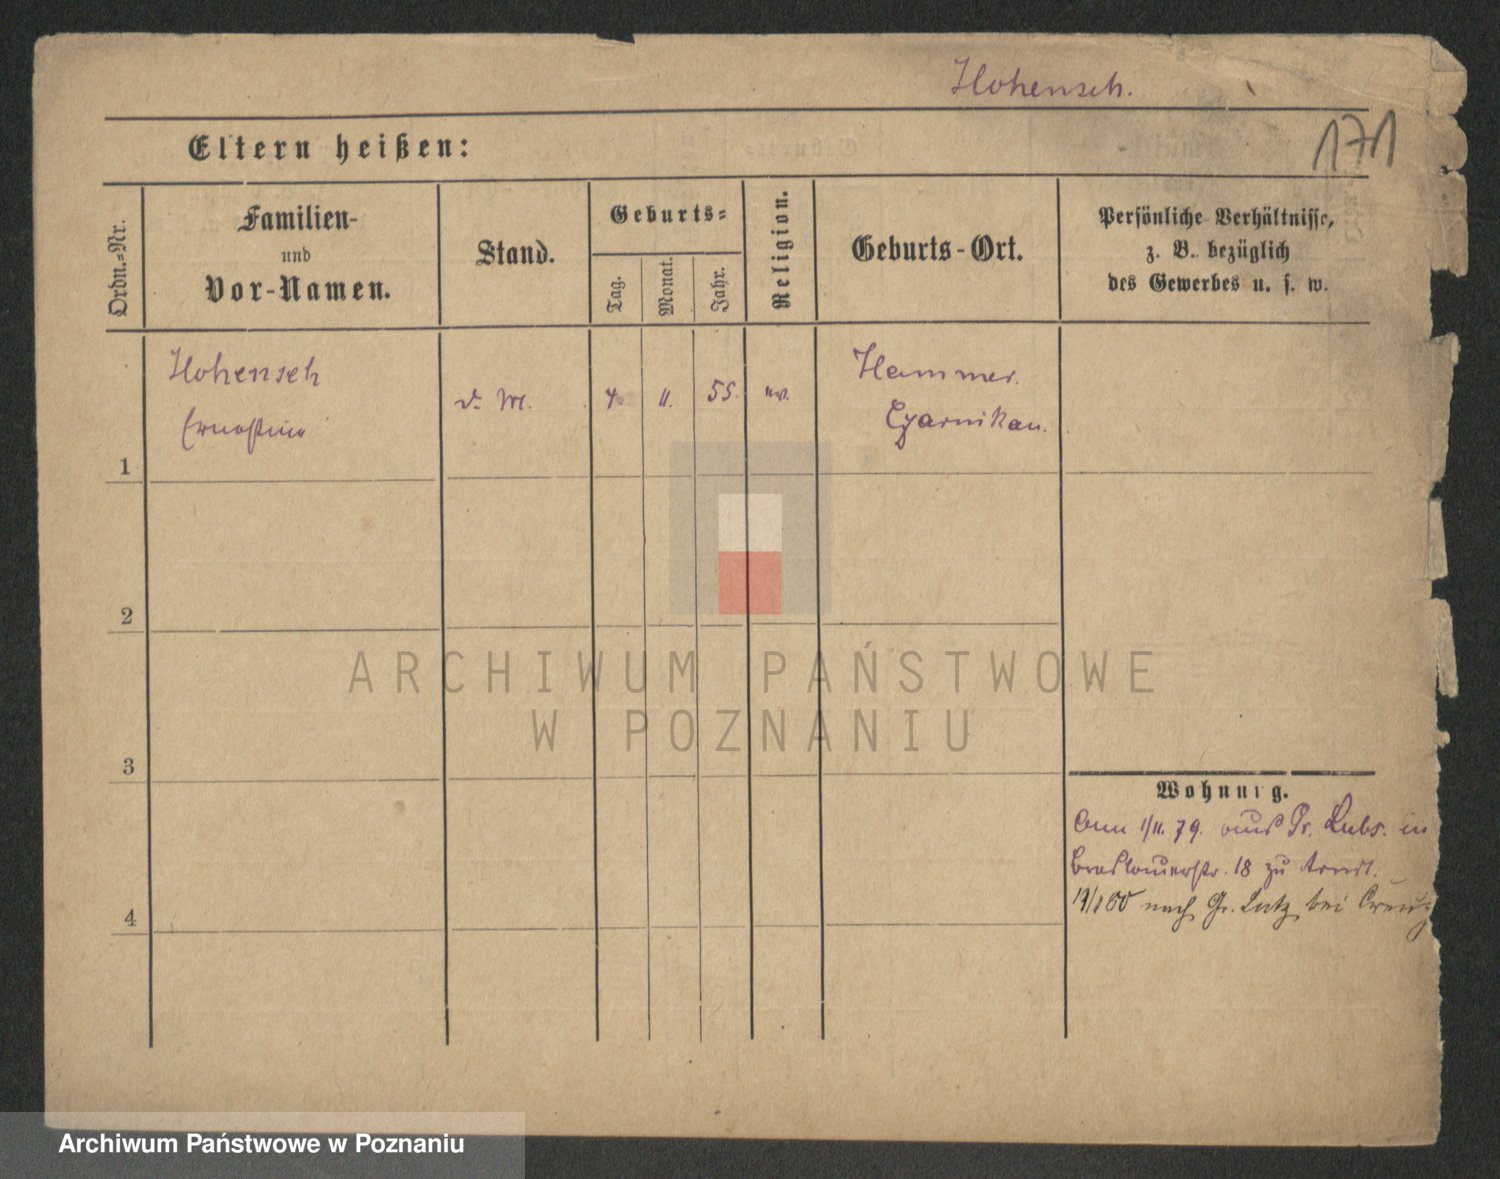 Hohensch.
171
Eltern heißen:
Ordn.-Nr.
Familien-
und
Vor-Namen.
Stand.
Geburts-
Tag.
Monat.
Jahr.
Religion.
Geburts-Ort.
Persönliche Verhältnisse,
z. B. bezüglich
des Gewerbes u. s. w.
1
Hohensch
Ernestine
d. M.
4.
11.
55.
ev.
Hammer.
Czarnikau.
2
3
4
Wohnung.
1/11. 79. aus Gr. Lubs. in
Breslauerstr. 18 zu Arndt.
nach Gr. Lutz bei Creuz
ARCHIWUM PAŃSTWOWE
W POZNANIU
Archiwum Państwowe w Poznaniu